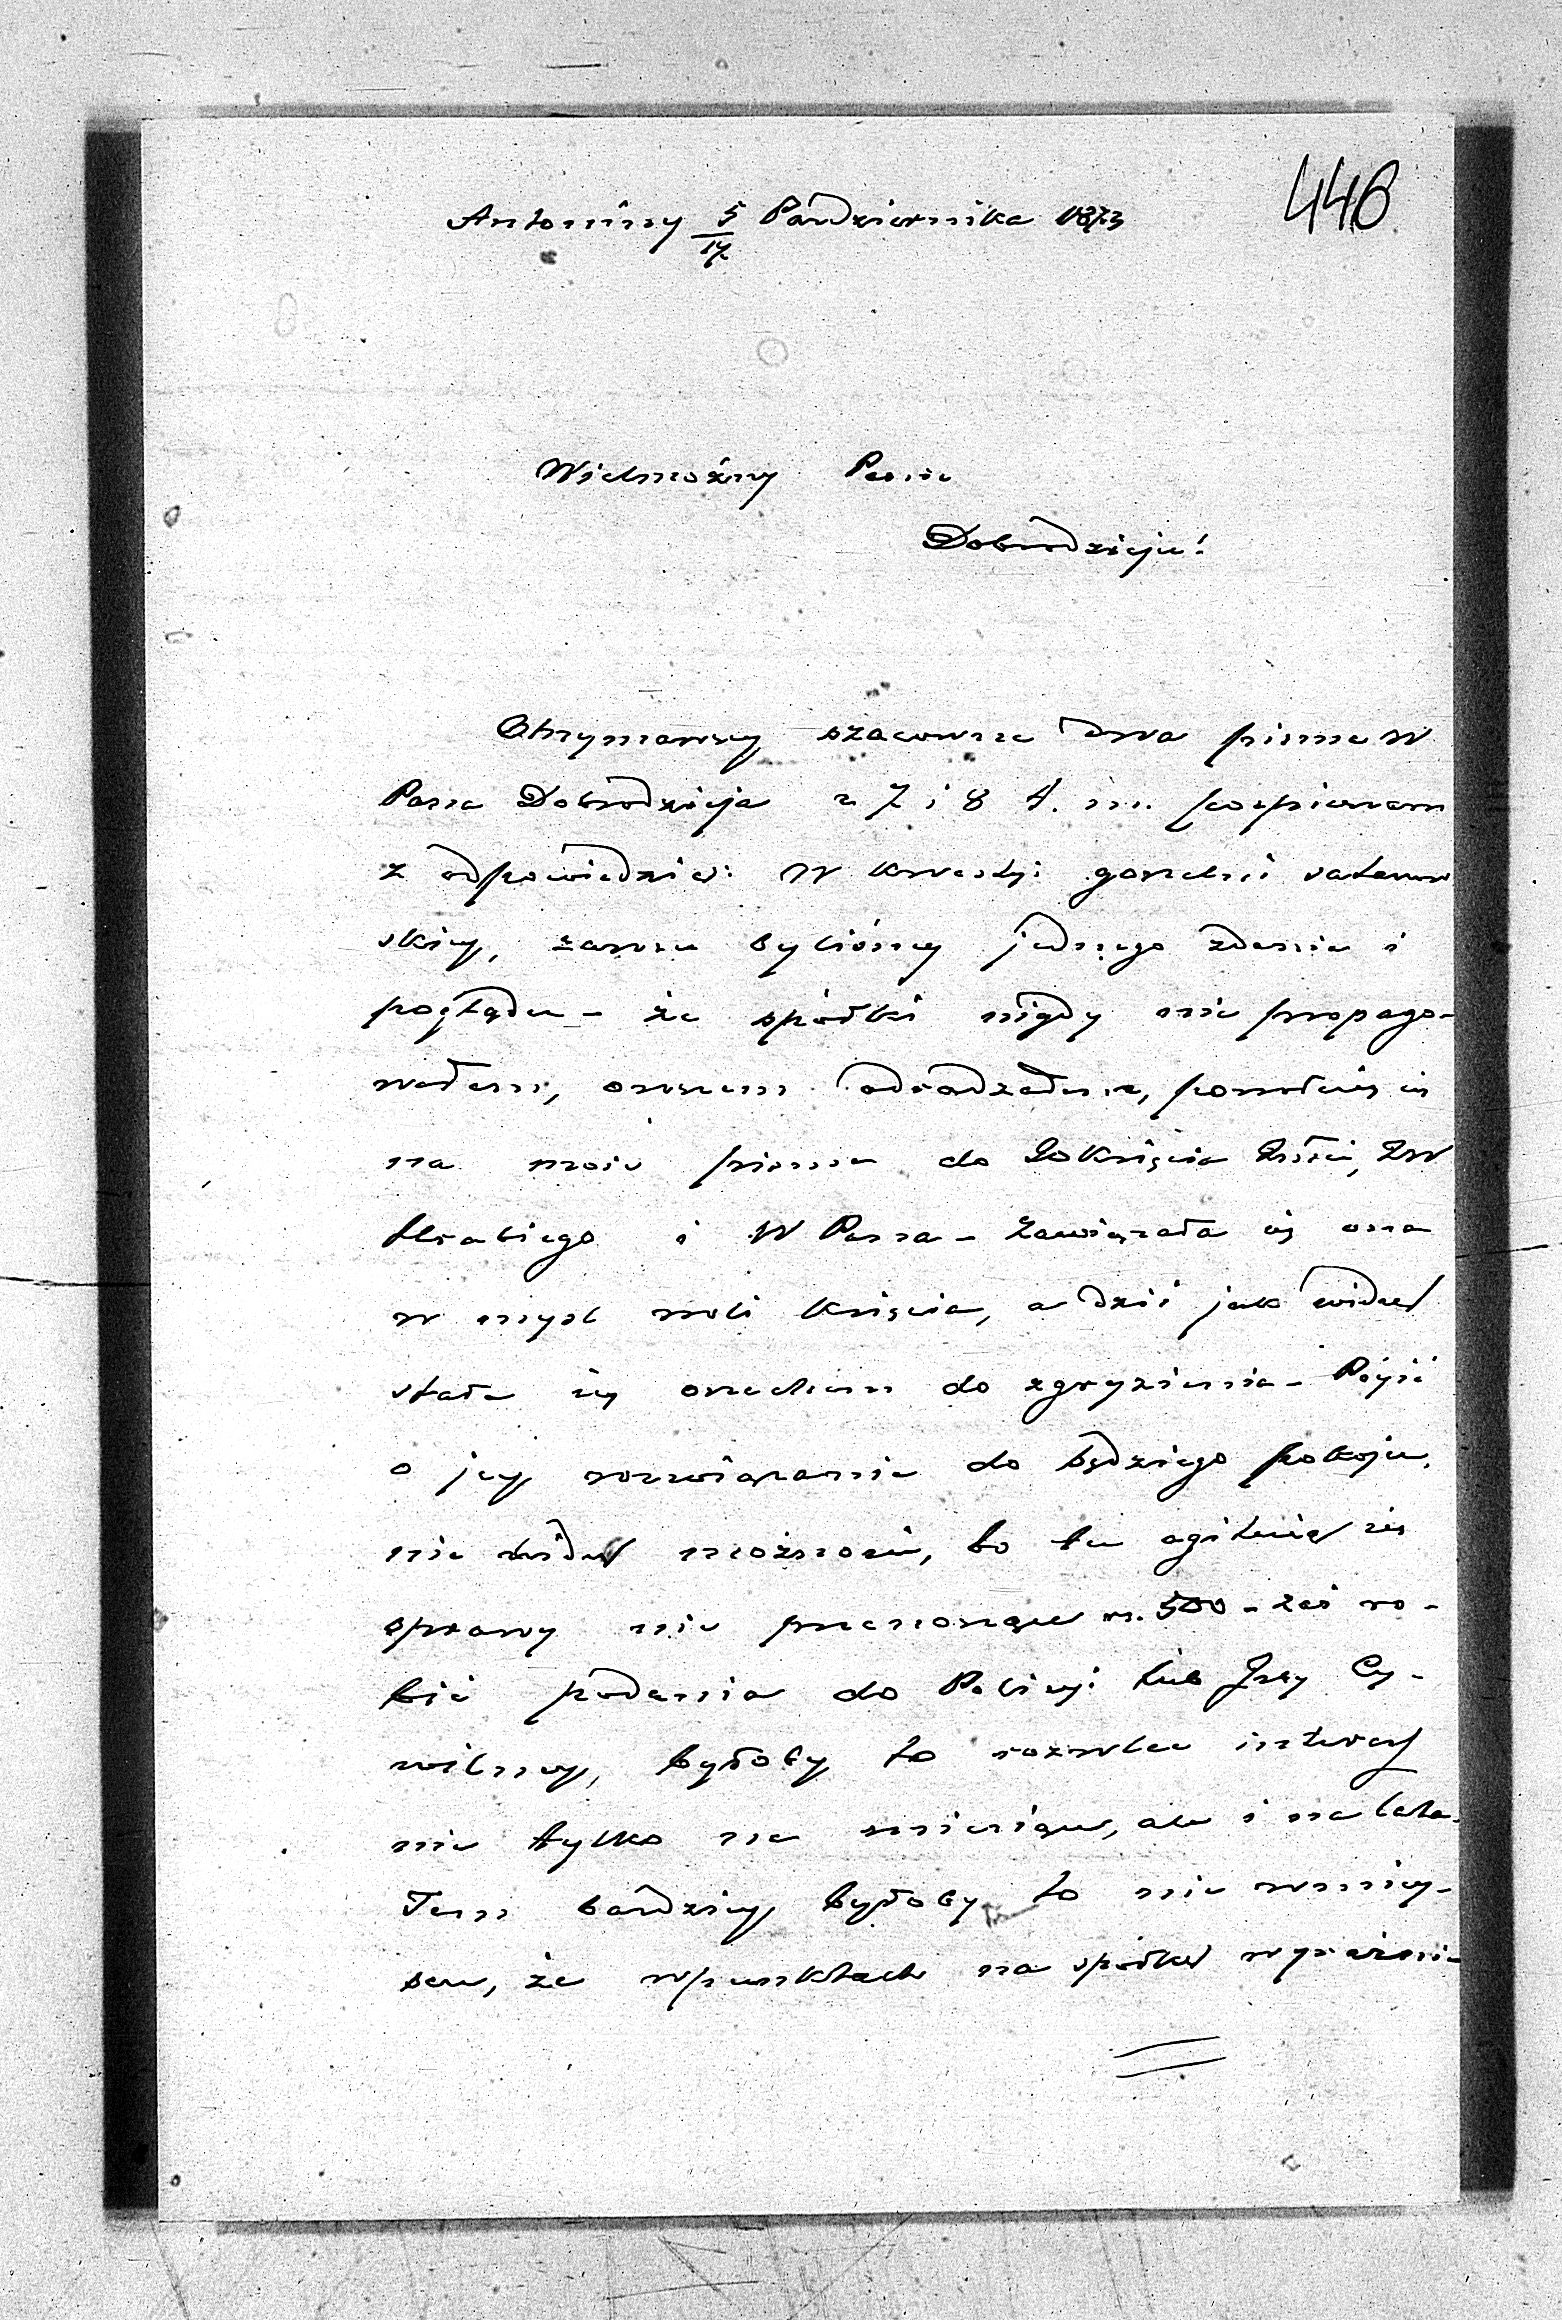 446
Antoniny 5/17 Października 1873
Wielmożny Panie
Dobrodzieju!
Otrzymawszy szacowne dwa pisma W
Pana Dobrodzieja z 7 i 8 t. m. pospieszam
z odpowiedzią: W kwestyi gorzelni satanow
skiej, zawsze byliśmy jednego zdania i
poglądu – że spółki nigdy nie propago-
wałem, owszem odradzałem, powołuję się
na moje pisma do JO Księcia, JW
Hrabiego i W Pana – zawiązała się ona
w myśl woli Księcia, a dziś jak widzę
stała się orzechem do zgryzienia –
o jej rozwiązanie do Sędziego pokoju,
nie widzę możności, bo tu agituią się
sprawy nie przenoszące r. 500 – zaś ro-
bić podania do Policyi lub Izby Cy-
wilnej, byłoby to rozwlec interes
nie tylko na miesiące, ale i na lata.
Tem bardziej byłoby to nie w miej-
scu, że w punktach na spółkę